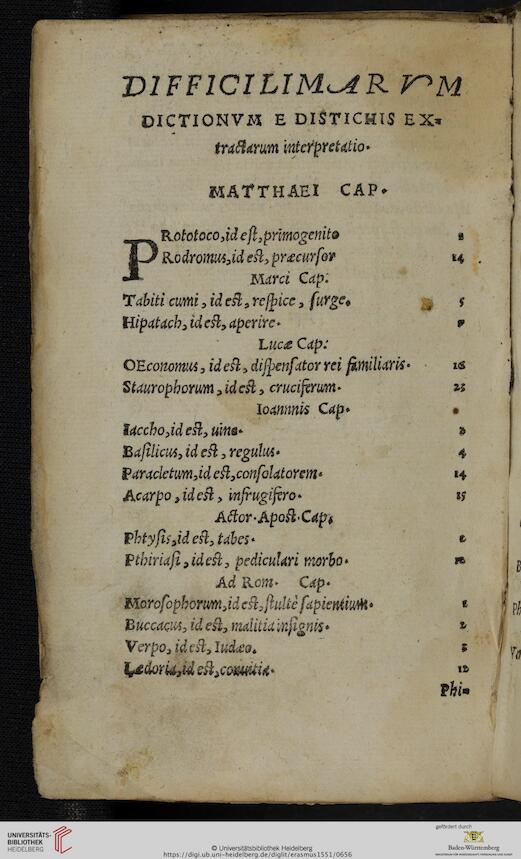 DIFFICILIMARVM
DICTIONVM E DISTICHIS EX=
tractarum interpretatio.
MATTHAEI CAP.
PRototoco, id est, primogenito
Rodromus, id est, præcursor 14
Marci Cap.
Tabiti cumi, id est, respice, surge. 5
Hipatach, id est, aperire.
Lucæ Cap:
OEconomus, id est, dispensator rei familiaris. 16
Staurophorum, id est, cruciferum. 23
Ioannnis Cap.
Iaccho, id est, uino.
Basilicus, id est, regulus. 4
Paracletum, id est, consolatorem. 14
Acarpo, id est, infrugifero. 15
Actor. Apost. Cap.
Phtysis, id est, tabes.
Pthiriasi, id est, pediculari morbo.
Ad Rom. Cap.
Morosophorum, id est, stultè sapientium.
Buccacus, id est, malitia insignis. 2
Verpo, id est, Iudæo.
Lædoria, id est, 12
Phi=
UNIVERSITÄTS-
BIBLIOTHEK
HEIDELBERG
© Universitätsbibliothek Heidelberg
https://digi.ub.uni-heidelberg.de/diglit/erasmus1551/0656
gefördert durch
Baden-Württemberg